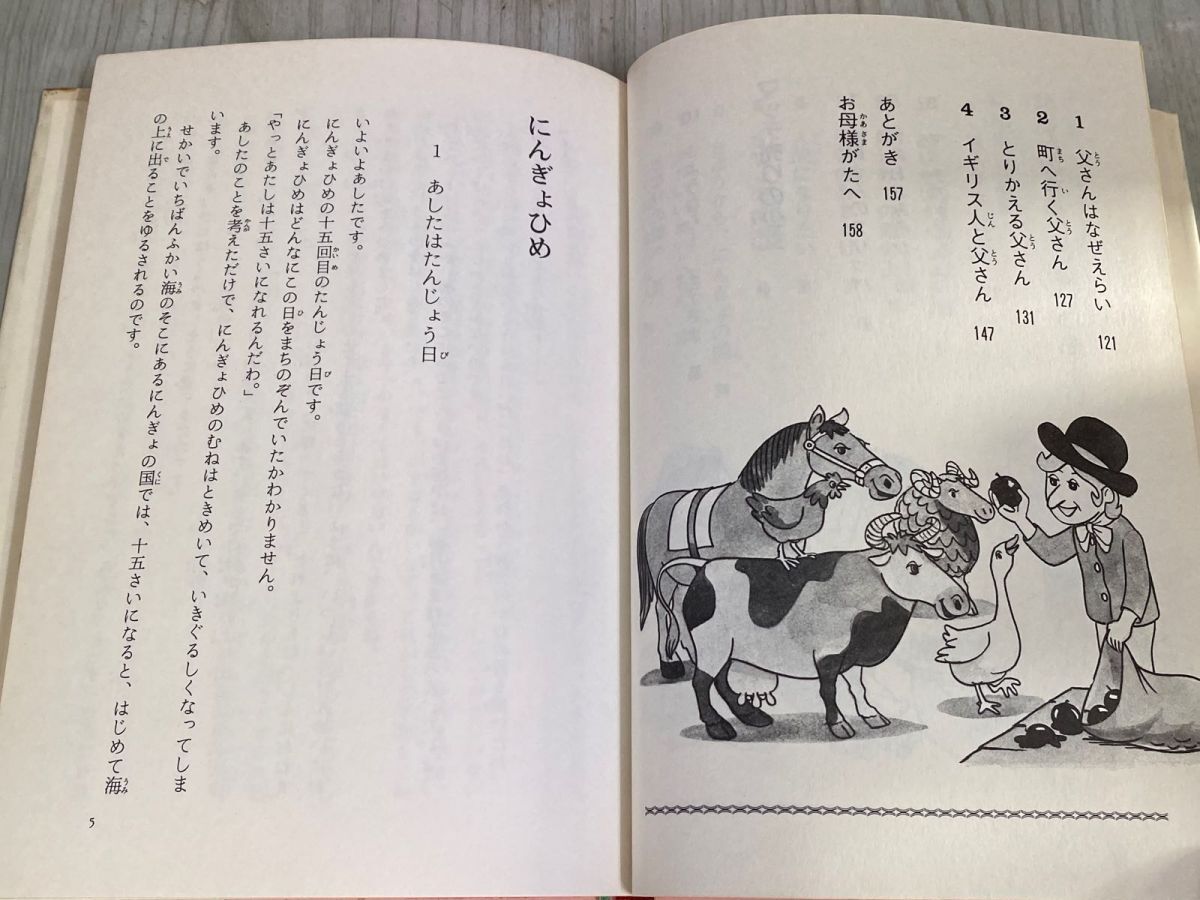 1 父さんはなぜえらい 121
2 町へ行く父さん 127
3 とりかえる父さん 131
4 イギリス人と父さん 147
あとがき 157
お母様がたへ 158
にんぎょひめ
1 あしたはたんじょう日
いよいよあしたです。
にんぎょひめの十五回目のたんじょう日です。
にんぎょひめはどんなにこの日をまちのぞんでいたかわかりません。
「やっとあたしは十五さいになれるんだわ。」
あしたのことを考えただけで、にんぎょひめのむねはときめいて、いきぐるしくなってしま
います。
せかいでいちばんふかい海のそこにあるにんぎょの国では、十五さいになると、はじめて海
の上に出ることをゆるされるのです。
5